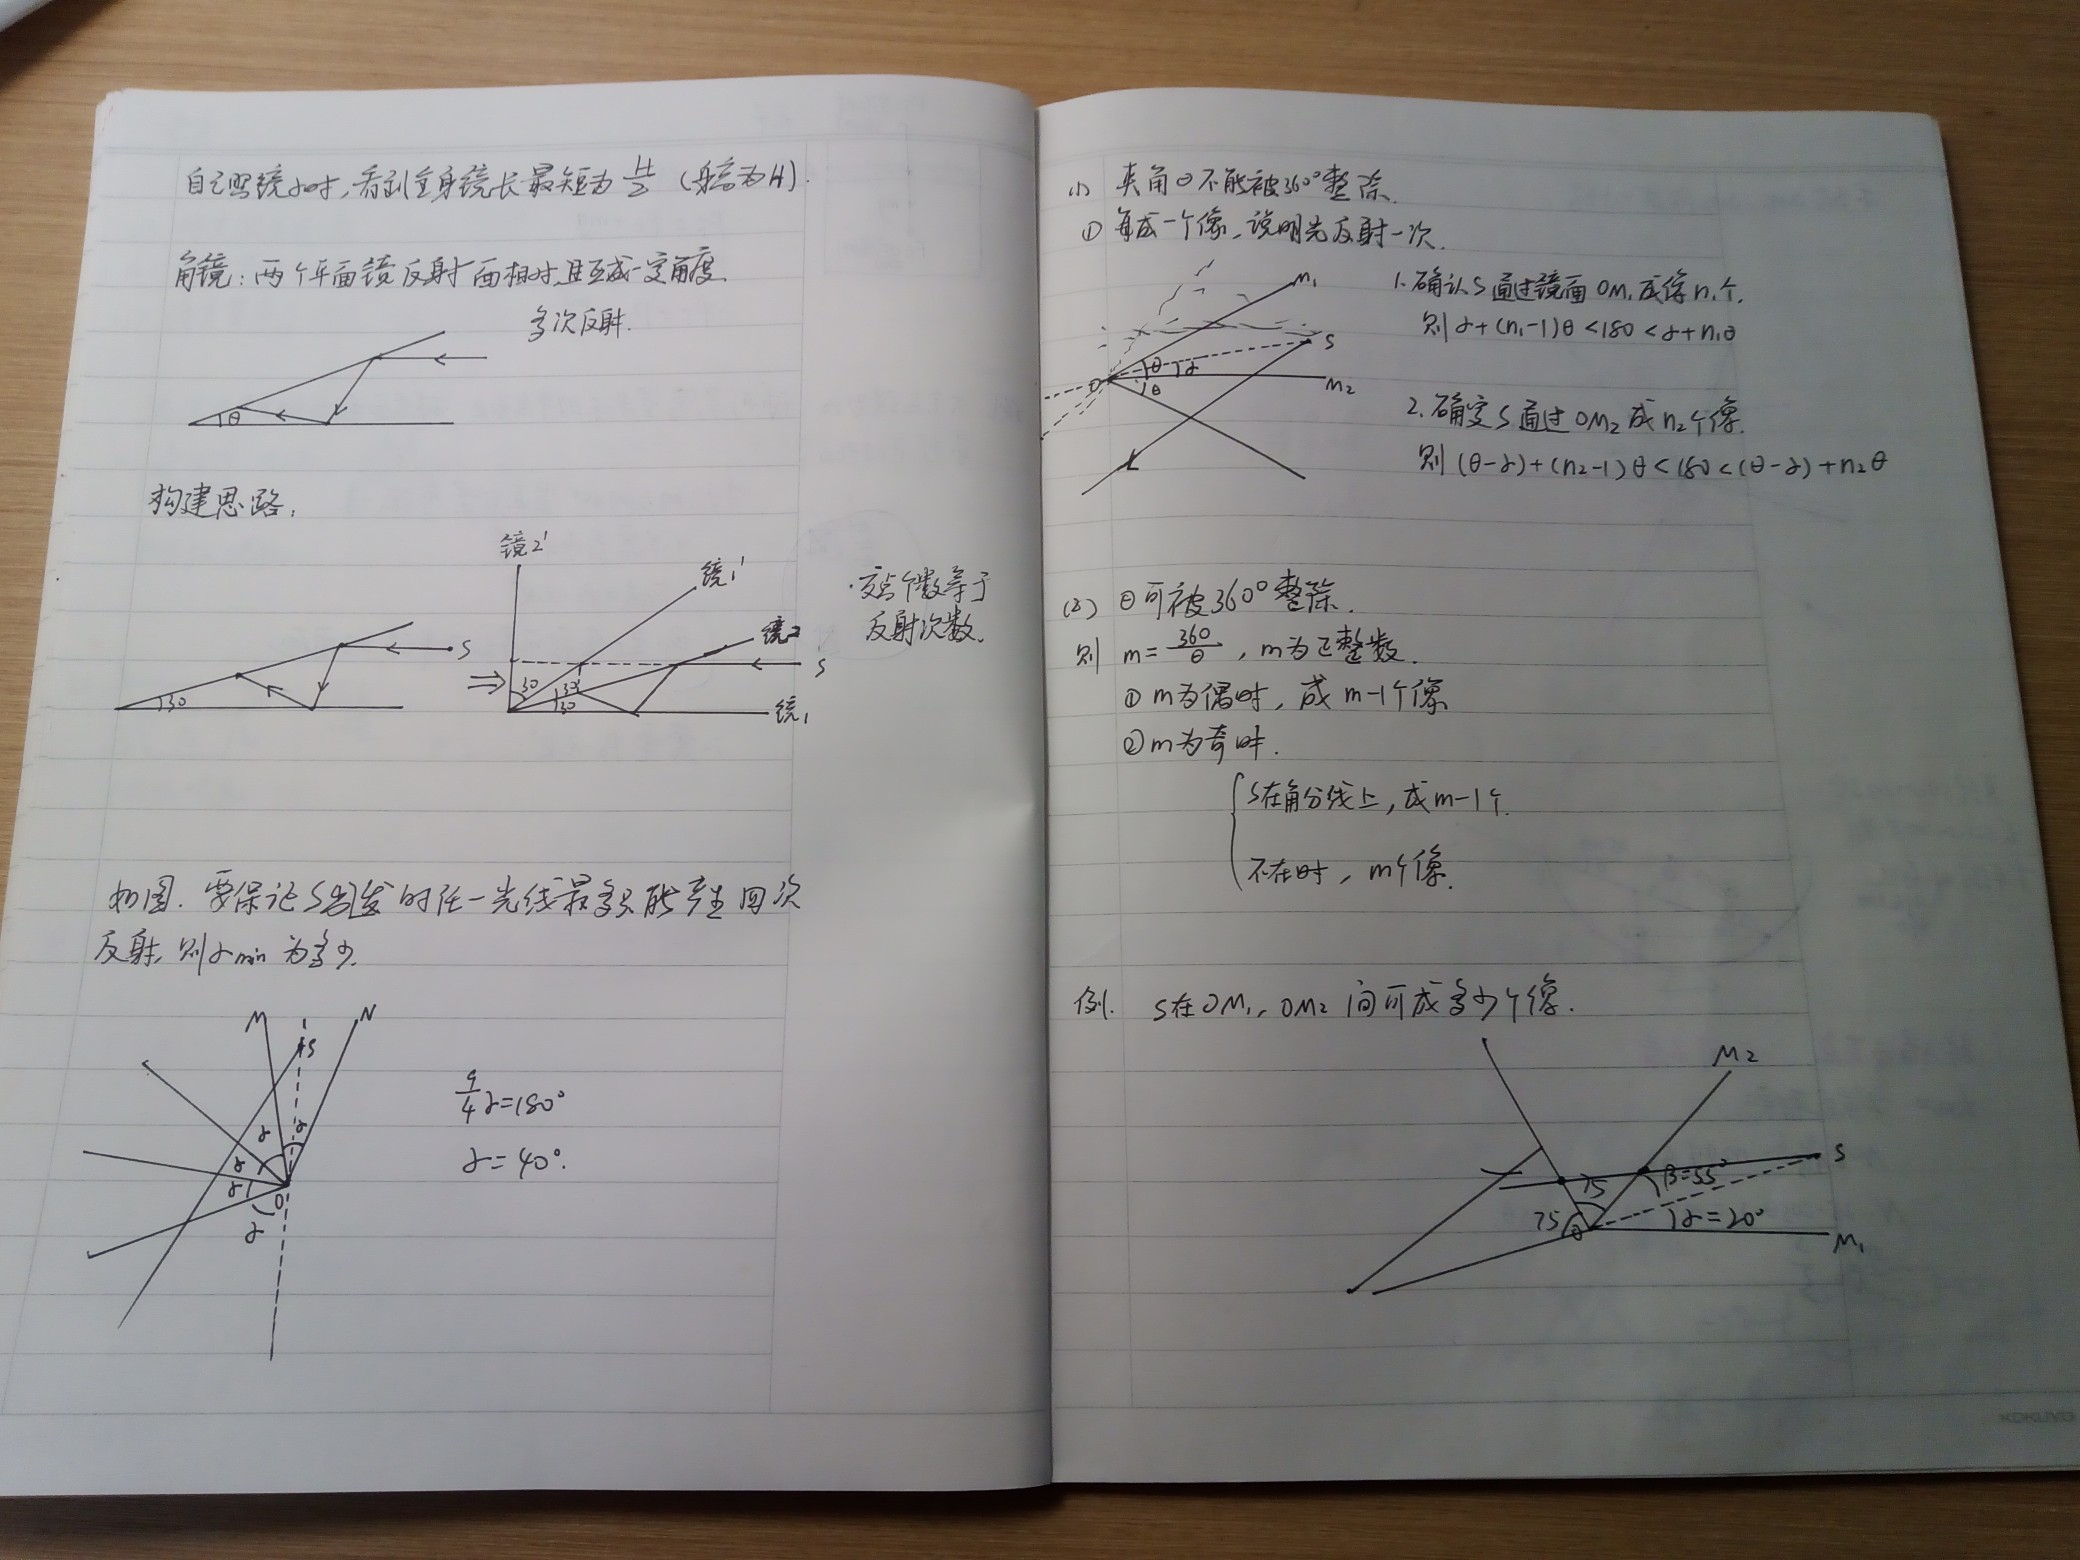 自己照镜子时,看到全身镜长最短为 H/2 (身高为H).
角镜:两个平面镜反射面相对,且互成一定角度
多次反射.
θ
构建思路:
30
S
镜2'
镜1'
镜2
S
镜1
30
30
30
·交点个数等于
反射次数.
如图.要保证S出发的任一光线最多只能产生四次
反射,则αmin为多少.
M
N
S
α
α
α
α
α
O
9/4 α=180°
α=40°.
(1) 夹角θ不能被360°整除.
① 每成一个像,说明光反射一次.
M1
S
M2
O
θ
α
θ
1.确认S通过镜面OM1成像n1个.
则α+(n1-1)θ<180<α+n1θ
2.确定S通过OM2成n2个像.
则(θ-α)+(n2-1)θ<180<(θ-α)+n2θ
(2) θ可被360°整除.
则 m=360/θ, m为正整数.
①m为偶时,成m-1个像
②m为奇时.
S在角分线上,成m-1个.
不在时,m个像.
例. S在OM1,OM2间可成多少个像.
M2
S
75
β=55°
75
O
α=20°
M1
KOKUYO